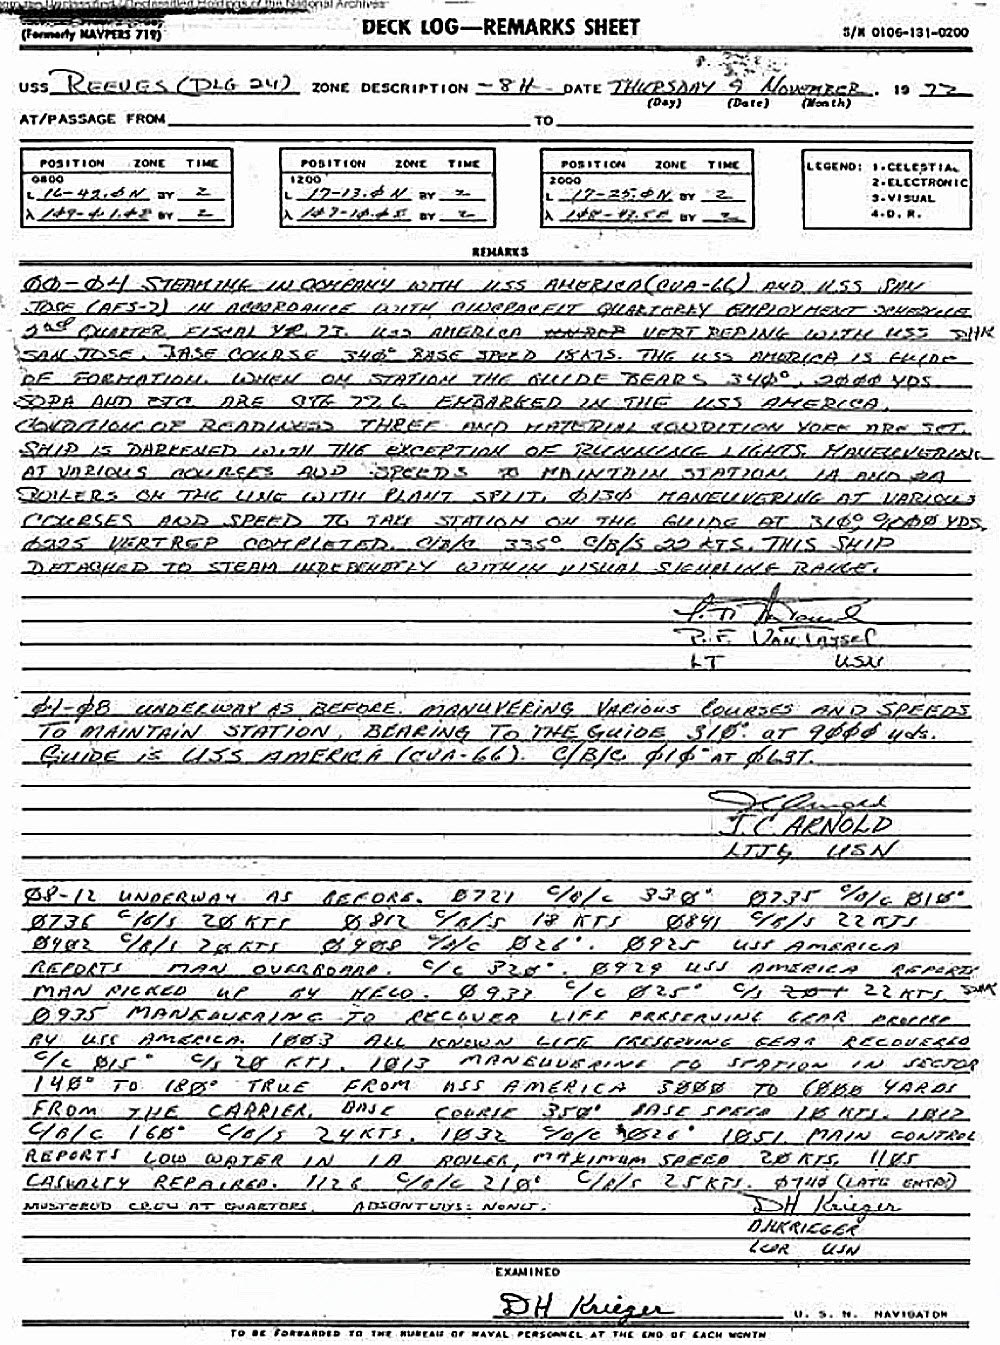 the Unclassified / Declassified Holdings of the National Archives
(Formerly NAVPERS 719)
DECK LOG—REMARKS SHEET
S/N 0106-131-0200
USS REEVES (DLG 24) ZONE DESCRIPTION -8H DATE THURSDAY 9 NOVEMBER, 19 72
(Day) (Date) (Month)
AT/PASSAGE FROM TO
POSITION ZONE TIME
0800
L 16-42.0N BY 2
λ BY 2
POSITION ZONE TIME
1200
L 17-13.0N BY 2
λ BY 2
POSITION ZONE TIME
2000
L 17-25.0N BY 2
λ BY 2
LEGEND: 1-CELESTIAL
2-ELECTRONIC
3-VISUAL
4-D. R.
REMARKS
00-04 STEAMING IN COMPANY WITH USS AMERICA (CVA-66) AND USS SAN
JOSE (AFS-7) IN ACCORDANCE WITH CINCPACFLT QUARTERLY EMPLOYMENT SCHEDULE
2nd QUARTER FISCAL YR 73. USS AMERICA VERT REPING WITH USS DHK
SAN JOSE. BASE COURSE 340° BASE SPEED 18KTS. THE USS AMERICA IS GUIDE
OF FORMATION. WHEN ON STATION THE GUIDE BEARS 340°, 2000 YDS.
SOPA AND OTC ARE CTG 77.6 EMBARKED IN THE USS AMERICA.
CONDITION OF READINESS THREE AND MATERIAL CONDITION YOKE ARE SET.
SHIP IS DARKENED WITH THE EXCEPTION OF RUNNING LIGHTS. MANEUVERING
AT VARIOUS COURSES AND SPEEDS TO MAINTAIN STATION. 1A AND 2A
BOILERS ON THE LINE WITH PLANT SPLIT. 0130 MANEUVERING AT VARIOUS
COURSES AND SPEED TO TAKE STATION ON THE GUIDE AT 310° 9000 YDS.
0225 VERTREP COMPLETED. C/B/C 335° C/B/S 22 KTS. THIS SHIP
DETACHED TO STEAM INDEPENDTLY WITHIN VISUAL SIGNALING RANGE.
LT USN
04-08 UNDERWAY AS BEFORE. MANUVERING VARIOUS COURSES AND SPEEDS
TO MAINTAIN STATION, BEARING TO THE GUIDE 310° AT 9000 yds.
GUIDE IS USS AMERICA (CVA-66). C/B/C 010° AT 0637.
J.C. Arnold
J.C. ARNOLD
LTJG USN
08-12 UNDERWAY AS BEFORE. 0721 C/B/C 330° 0735 C/B/C 010°
0736 C/B/S 20 KTS 0812 C/B/S 18 KTS 0841 C/B/S 22 KTS
0902 C/B/S 20 KTS 0908 C/B/C 026°. 0925 USS AMERICA
REPORTS MAN OVERBOARD. C/C 320°. 0929 USS AMERICA REPORTS
MAN PICKED UP BY HELO. 0933 C/C 025° C/S 22 KTS. DHK
0935 MANEUVERING TO RECOVER LIFE PRESERVING GEAR DROPPED
BY USS AMERICA. 1003 ALL KNOWN LIFE PRESERVING GEAR RECOVERED
C/C 015° C/S 20 KTS. 1013 MANEUVERING TO STATION IN SECTOR
140° TO 180° TRUE FROM USS AMERICA 3000 TO 6000 YARDS
FROM THE CARRIER. BASE COURSE 350° BASE SPEED 10 KTS. 1012
C/B/C 160° C/B/S 24 KTS. 1032 C/B/C 026° 1051 MAIN CONTROL
REPORTS LOW WATER IN 1A BOILER, MAXIMUM SPEED 20 KTS. 1105
CASUALTY REPAIRED. 1126 C/B/C 210° C/B/S 25 KTS. 0740 (LATE ENTRY)
MUSTERED CREW AT QUARTERS. ABSENTEES: NONE.
DH Krieger
D.H. KRIEGER
LCDR USN
EXAMINED
DH Krieger U. S. N. NAVIGATOR
TO BE FORWARDED TO THE BUREAU OF NAVAL PERSONNEL AT THE END OF EACH MONTH